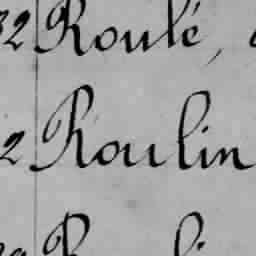 32 Roulé,
2 Roulin